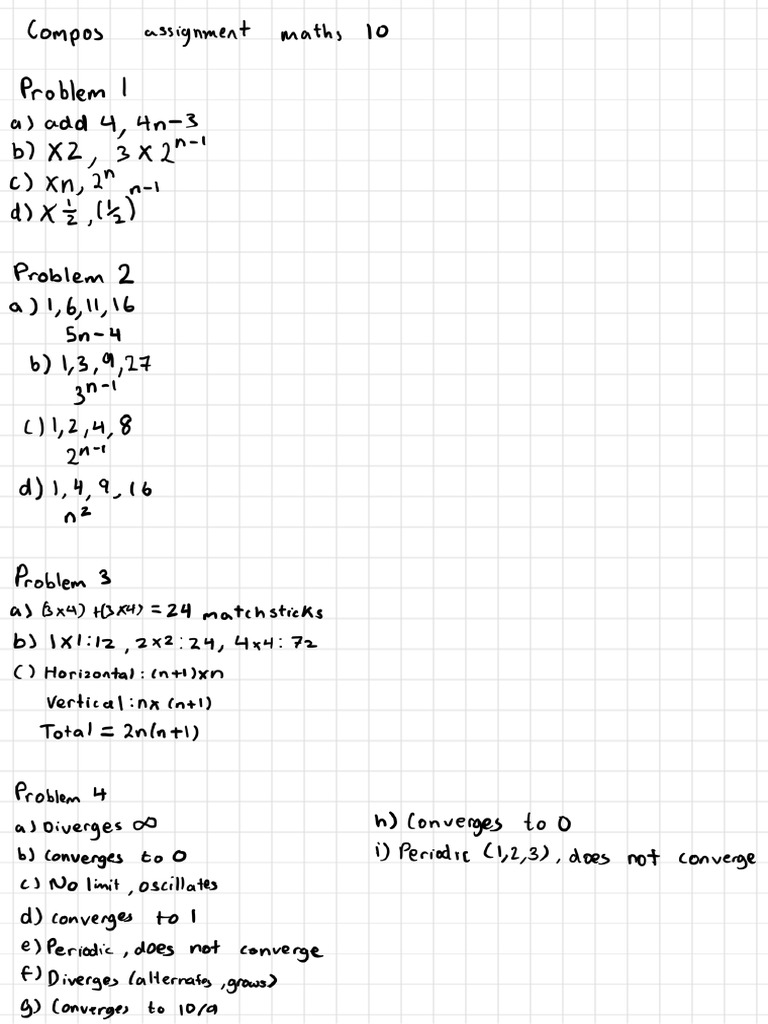 Compos assignment maths 10
Problem 1
a) add 4, 4n-3
b) X2, 3 X 2^n-1
c) Xn, 2^n
d) X 1/2, (1/2)^n-1
Problem 2
a) 1,6,11,16
5n-4
b) 1,3,9,27
3^n-1
c) 1,2,4,8
2^n-1
d) 1,4,9,16
n^2
Problem 3
a) (3x4) +(3x4) = 24 matchsticks
b) 1X1:12, 2x2:24, 4x4: 72
c) Horizontal: (n+1)xn
Vertical: nx (n+1)
Total = 2n(n+1)
Problem 4
a) Diverges ∞
b) Converges to 0
c) No limit, oscillates
d) Converges to 1
e) Periodic, does not converge
f) Diverges (alternates, grows)
g) Converges to 10/9
h) Converges to 0
i) Periodic (1,2,3), does not converge